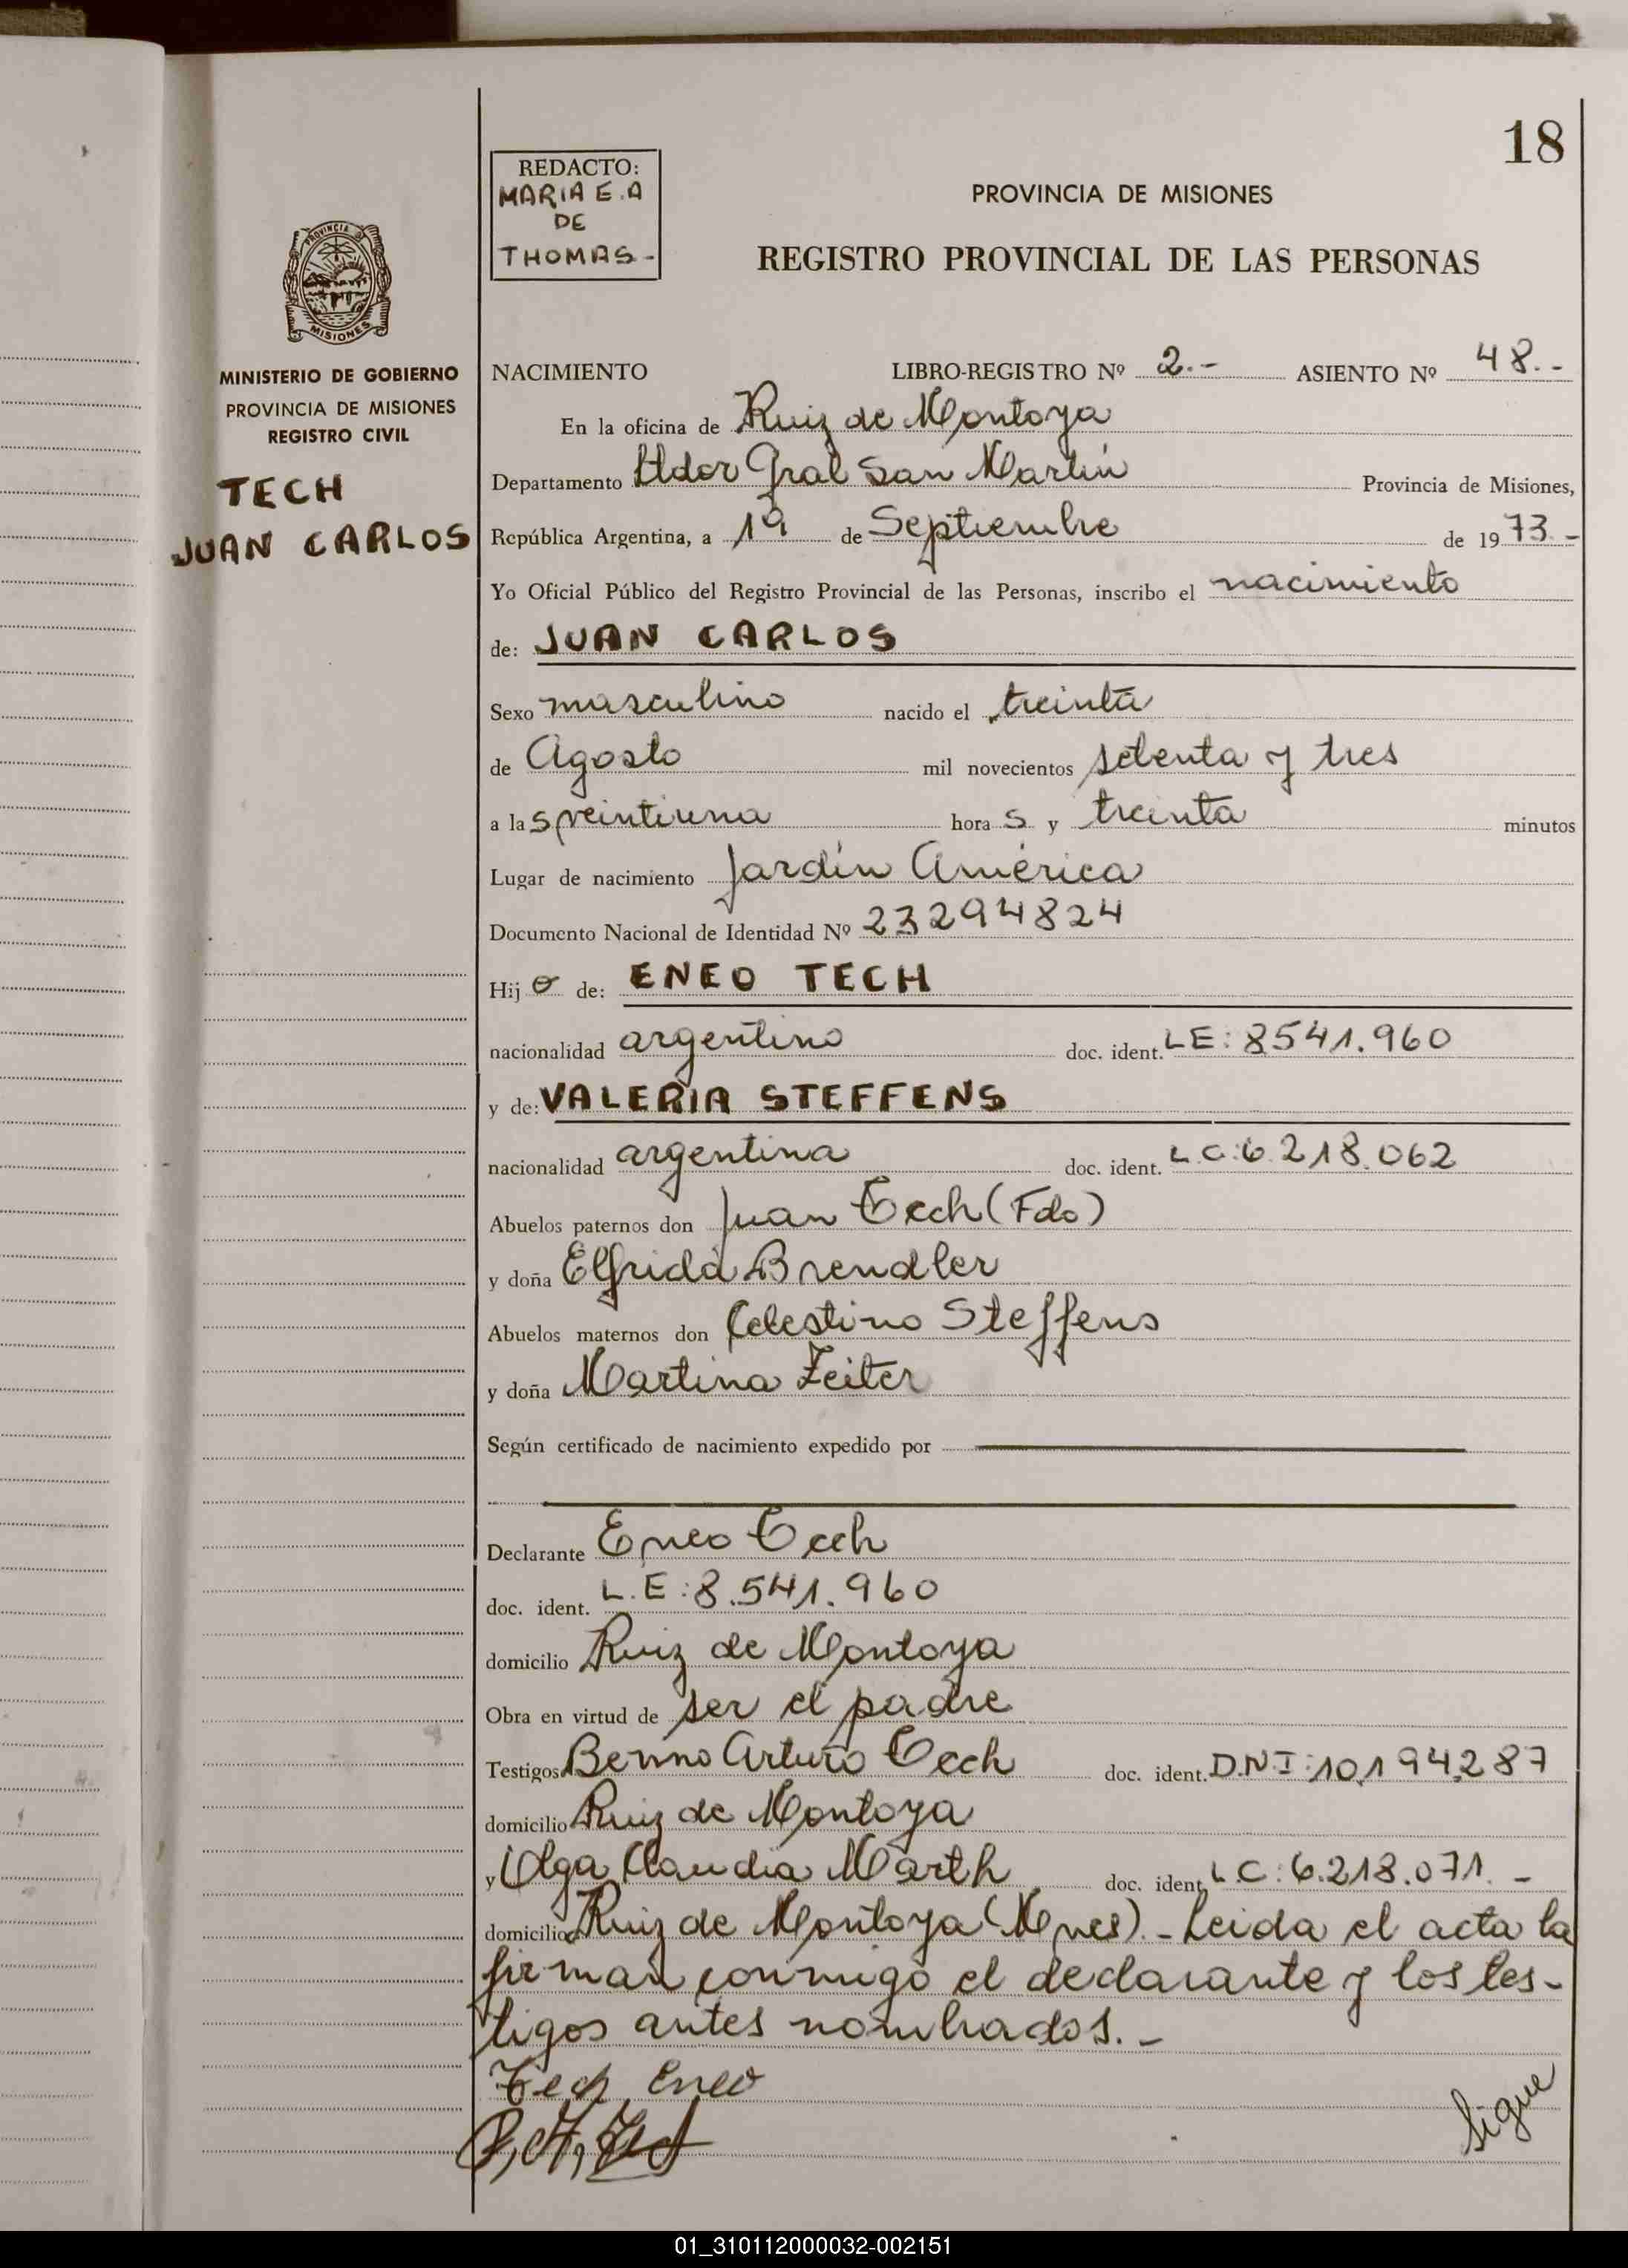 18
REDACTO:
MARIA E. A
DE
THOMAS -
PROVINCIA DE MISIONES
REGISTRO PROVINCIAL DE LAS PERSONAS
PROVINCIA DE
MISIONES
MINISTERIO DE GOBIERNO
PROVINCIA DE MISIONES
REGISTRO CIVIL
TECH
JUAN CARLOS
NACIMIENTO LIBRO-REGISTRO Nº 2.- ASIENTO Nº 48.-
En la oficina de Ruiz de Montoya
Departamento Ldor Gral San Martín Provincia de Misiones,
República Argentina, a 1º de Septiembre de 1973.-
Yo Oficial Público del Registro Provincial de las Personas, inscribo el nacimiento
de: JUAN CARLOS
Sexo masculino nacido el treinta
de Agosto mil novecientos setenta y tres
a las veintiuna horas y treinta minutos
Lugar de nacimiento Jardín América
Documento Nacional de Identidad Nº 23294824
Hijo de: ENEO TECH
nacionalidad argentino doc. ident. LE: 8541.960
y de: VALERIA STEFFENS
nacionalidad argentina doc. ident. L.C:6.218.062
Abuelos paternos don Juan Tech (Fdo)
y doña Elfrida Brendler
Abuelos maternos don Celestino Steffens
y doña Martina Zeiter
Según certificado de nacimiento expedido por
Declarante Eneo Tech
doc. ident. L.E:8.541.960
domicilio Ruiz de Montoya
Obra en virtud de ser el padre
Testigos Benno Arturo Tech doc. ident. D.N.I:10.194.287
domicilio Ruiz de Montoya
y Olga Claudia Märth doc. ident. L.C:6.218.071.-
domicilio Ruiz de Montoya (Mnes).- Leida el acta la
firman conmigo el declarante y los tes-
tigos antes nombrados.-
Tech Eneo
Sigue
01_310112000032-002151